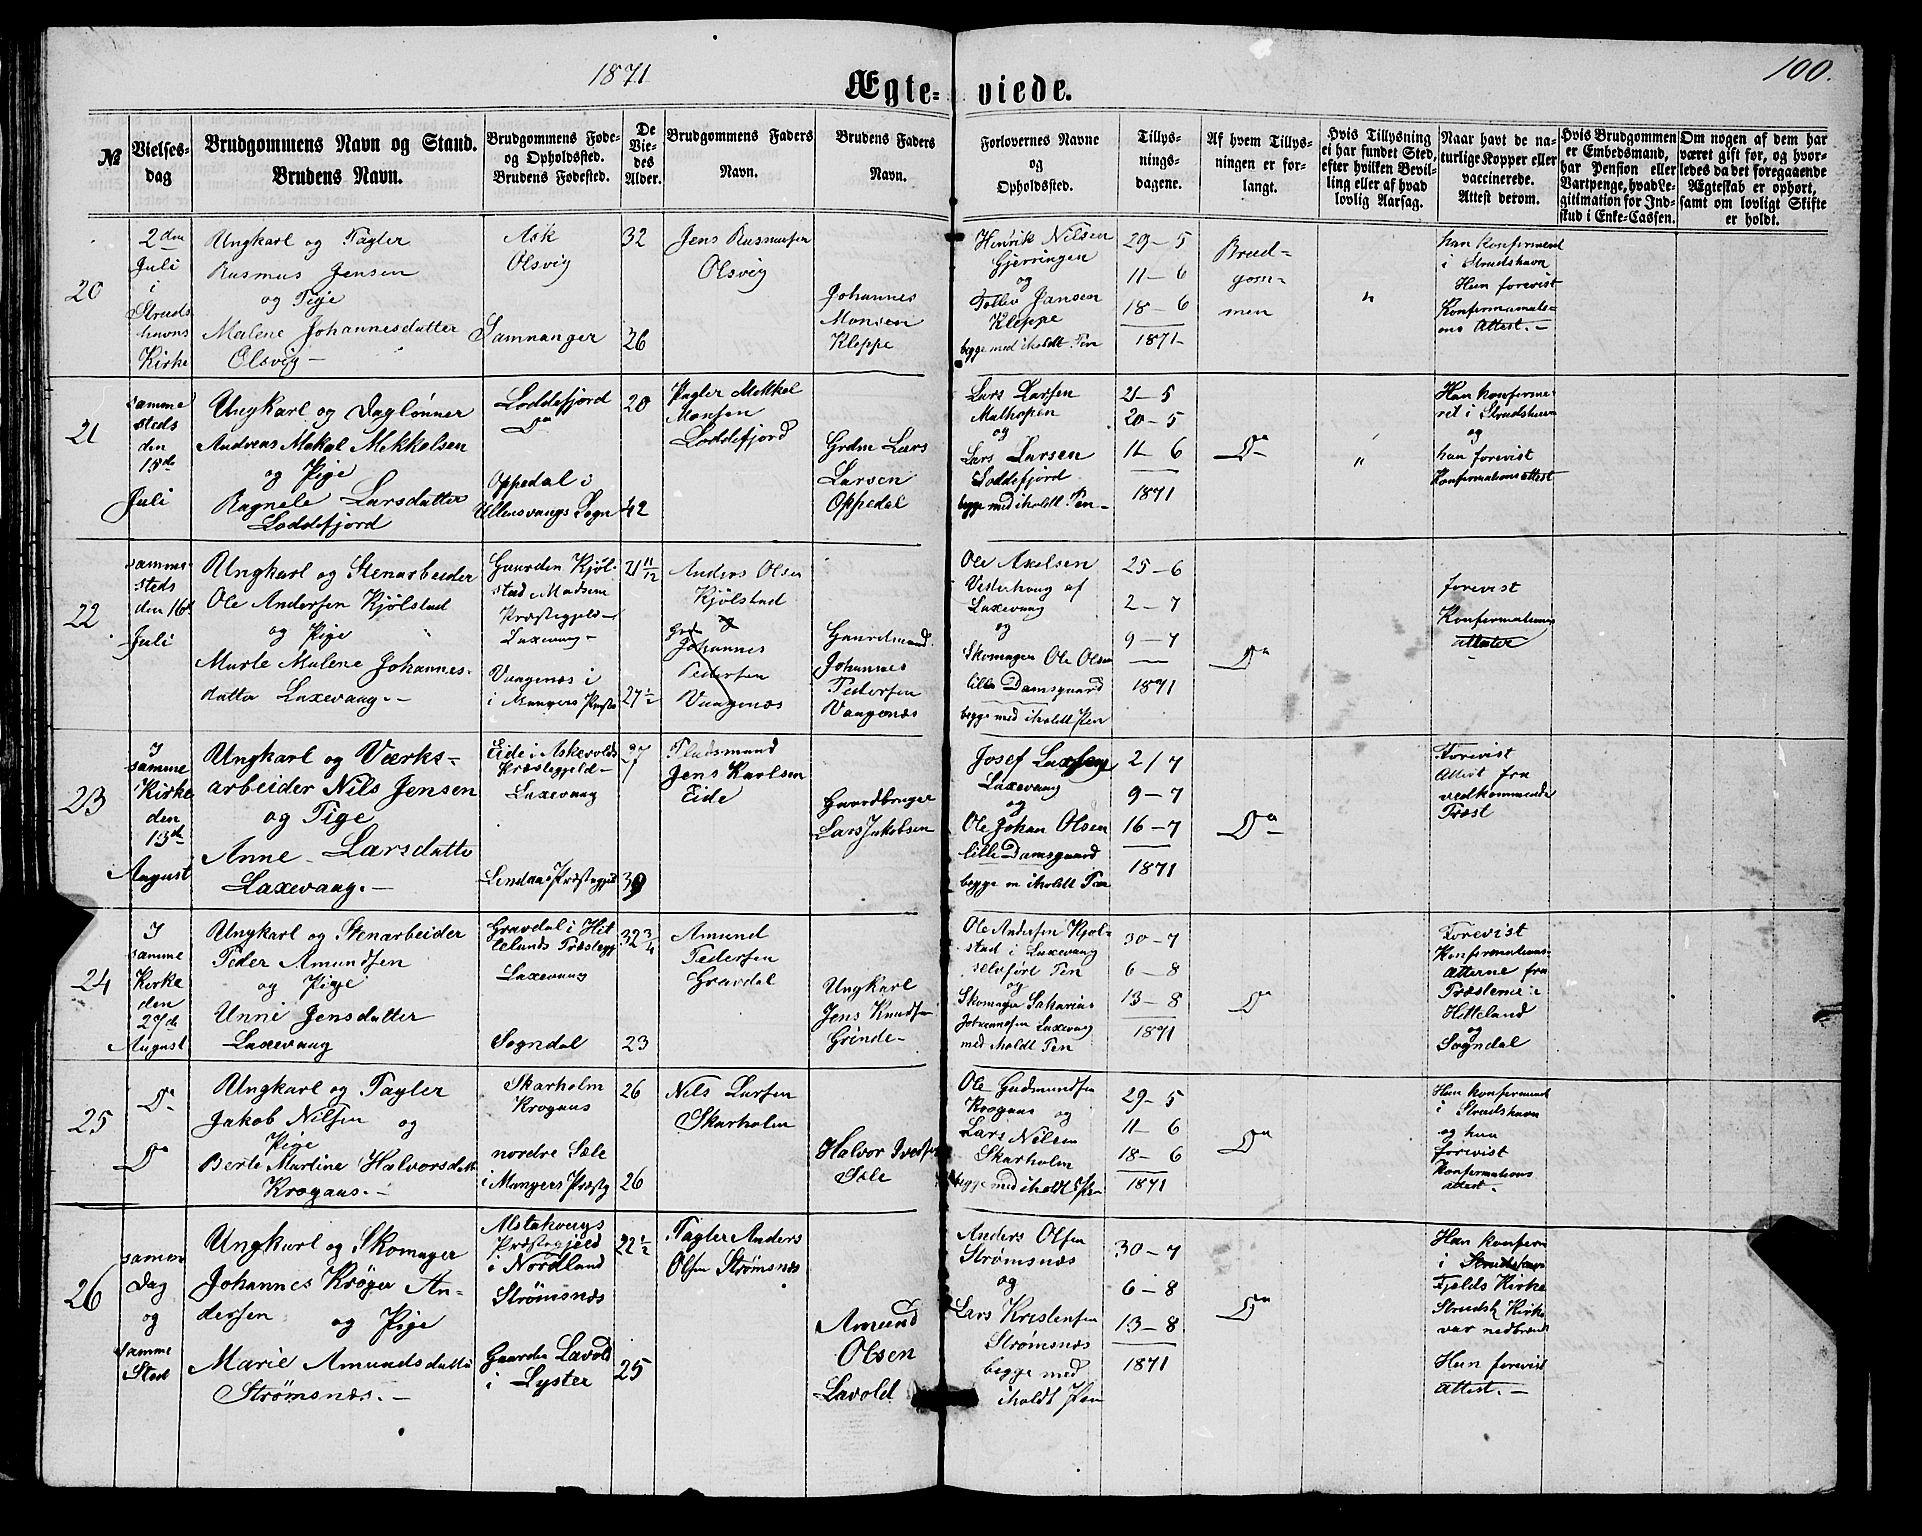 1871
Ægte-viede.
100.
№
Vielses-
dag
Brudgommens Navn og Stand.
Brudens Navn.
Brudgommens Føde-
og Opholdssted.
Brudens Fødested.
De
Vie-
des
Alder.
Brudgommens Faders
Navn.
Brudens Faders
Navn.
Forlovernes Navne
og
Opholdssted.
Tillys-
nings-
dagene.
Af hvem Tillys-
ningen er for-
langt.
Hvis Tillysning
ei har fundet Sted,
efter hvilken Bevil-
ling eller af hvad
lovlig Aarsag.
Naar havt de na-
turlige Kopper eller
vaccinerede.
Attest derom.
Hvis Brudgommen
er Embedsmand,
har Pension eller
Vartpenge, hvad Le-
gitimation for Ind-
skud i Enke-Cassen.
Om nogen af dem har
været gift før, og hvor-
ledes da det foregaaende
Ægteskab er ophørt,
samt om lovligt Skifte
er holdt.
20
2den
Juli
i
Struds
havns
Kirke
Ungkarl og Pagler
Rasmus Jensen
og Pige
Malene Johannesdatter
Olsvig –
Ask
Olsvig
Samnanger
32
36
Jens Rasmusen
Olsvig
Johannes
Monsen
Kleppe
Henrik Nilsen
Gjerringen
og
Jansen
Kleppe
begge med iholdt Pen
29–5
11–6
18–6
1871–
Brud-
gom-
men
"
han konfirmeret
i Strudshavn
Hun forevist
Konfirmati-
ons Attest. –
21
samme
steds
den
15de
Juli
Ungkarl og Daglønner
Andreas Mekal Mekkelsen
og Pige
Ragnele Larsdatter
Loddefjord
Loddefjord
Do
Oppedal i
Ullensvangs Sogn
20
42
Pagler Mekkel
Monsen
Loddefjord
Grdm Lars
Larsen
Oppedal
Lars Larsen
Mathopen
og
Lars Larsen
Loddefjord
begge med iholdt Pen –
21–5
20–5
11–6
1871
Do
"
Han konfirme-
ret i Strudshavn
og
hun forevist
Konfirmations attest
22
samme
steds
den 16de
Juli
Ungkarl og Stenarbeider
Ole Andersen Kjölstad
og Pige
Marte Malene Johannes-
datter Laxevaag. –
Gaarden Kjöl-
stad i Madsem
Præstegjeld –
Laxevaag –
Vaagenæs i
i Mangers Præste
21 11/12
27 1/2
Anders Olsen
Kjölstad
og
Johannes
Pedersen
Vaagenæs
Gaardmand
Johannes
Pedersen
Vaagenæs
Ole Axelsen
Vesterhaug af
Laxevaag
og
Skomager Ole Olsen
lille Damsgaard
begge med iholdt Pen
25–6
2–7
9–7
1871
Do
forevist
Konfirmations
attester
23
I
samme
Kirke
den
13de
August
Ungkarl og Værks-
arbeider Nils Jensen
og Pige
Anne Larsdatter
Laxevaag. –
Eide i Askevolds
Præstegjeld –
Laxevaag
Lindaas Præstegjeld
27
39
Pladsmand
Jens Karlsen
Eide
Gaardbruger
Lars Jakobsen
Josef Larsen
Laxevaag
og
Ole Johan Olsen
lille Damsgaard
begge m iholdt Pen
2/7
9–7
16–7
1871
Do
Forevist
Attest fra
vedkommende
Præst
24
I
samme
Kirke
den
27de
August
Ungkarl og Stenarbeider
Peder Amundsen
og Pige
Unni Jensdatter
Laxevaag
Gravdal i Hit
telands Præstegj
Laxevaag
Sogndal
32 3/4
23
Amund
Pedersen
Gravdal
Ungkarl
Jens Knudsen
Grinde –
Ole Andersen Kjøl-
stad i Laxevaag
selvført Pen
og
Skomager Sakarias
Johannesen Laxevaag
med iholdt Pen
30–7
6–8
13–8
1871
Do
Forevist
Konfirmations-
atterne fra
Præsterne i
Hitteland
og
Sogndal
25
Do
Do
Ungkarl og Pagler
Jakob Nilsen og
Pige
Berte Martine Halvorsdatt
Krogaas. –
Skarholm
Krogaas
nordre Sæle
i Mangers Præstg
26
26
Nils Larsen
Skarholm
Halvor
Sæle
Ole Gudmundsen
Krogaas og
Lars Nilsen
Skarholm
begge med iholdt Pen
29–5
11–6
18–6
1871
Do
Han konfirmeret
i Strudshavn
og hun
forevist
Konfirmations
attest –
26
samme
Dag
og
samme
Sted
Ungkarl og Skomager
Johannes Krøger An-
dersen og Pige
Marie Amundsdatter
Strømsnæs. –
Alstahaugs
Præstegjeld
i Nordland
Strømsnæs
Gaarden Lavold
i Lyster
22 1/2
25
Pagler Anders
Olsen Strømsnæs
Amund
Olsen
Lavold
Anders Olsen
Strømsnæs
og
Lars Kristensen
Strømsnæs
begge med
iholdt Pen
30–7
6–8
13–8
1871
Do
Han konfirm
i
Fjelds Kirke
Strudsh Kirke
var nedbrændt
Hun forevist
Attest. –